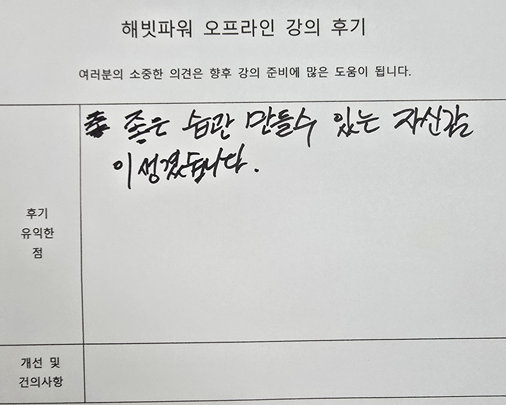 해빗파워 오프라인 강의 후기
여러분의 소중한 의견은 향후 강의 준비에 많은 도움이 됩니다.
후기
유익한
점
좋은 습관 만들수 있는 자신감
이 생겼습니다.
개선 및
건의사항